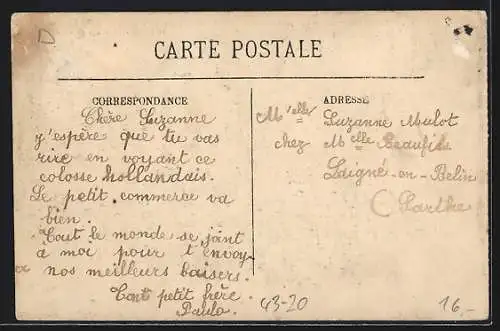 D
CARTE POSTALE
CORRESPONDANCE
Chère Suzanne
y'espère que tu vas
rire en voyant ce
colosse hollandais.
Le petit commerce va
bien.
Tout le monde se joint
à moi pour t'envoy
er nos meilleurs baisers.
Ton petit frère.
Paulo.
ADRESSE
Melle Suzanne Mulot
chez Melle Beaufils
Laigné-en-Belin
(Sarthe
43-20
16,-